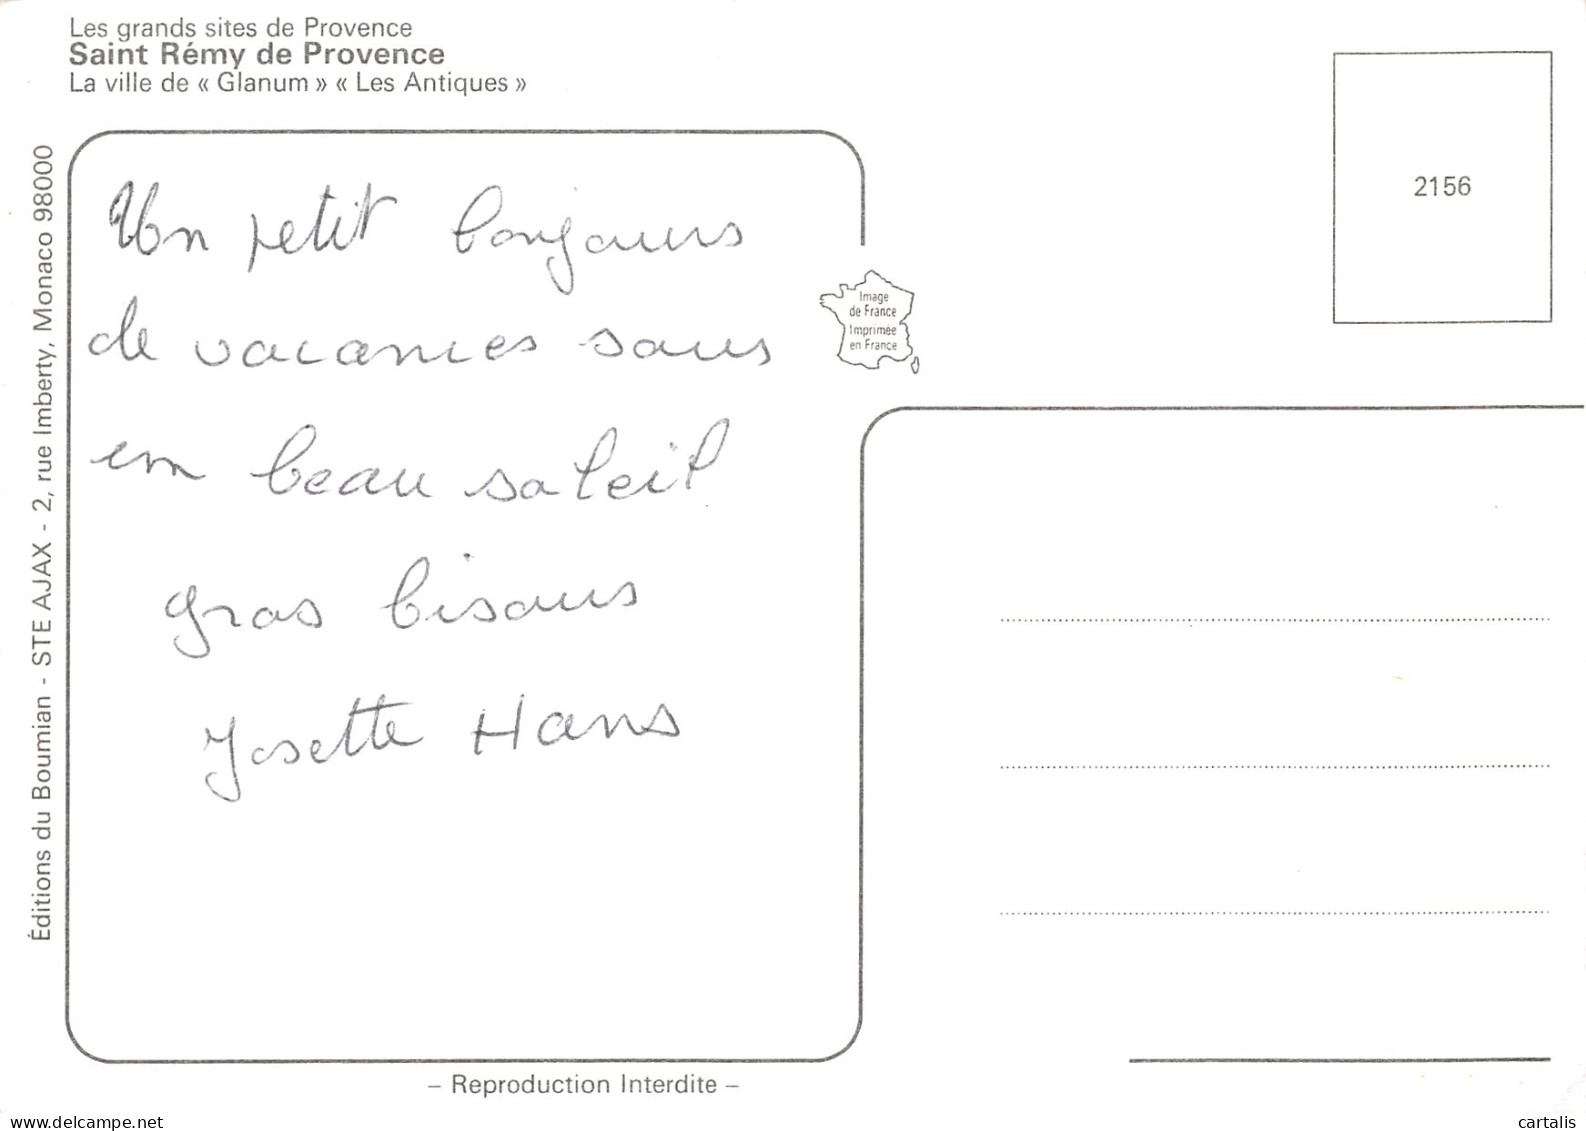 Les grands sites de Provence
Saint Rémy de Provence
La ville de « Glanum » « Les Antiques »
2156
Éditions du Boumian - STE AJAX - 2, rue Imberty, Monaco 98000
Un petit bonjours
de vacances sous
en beau soleil
gros bisous
Josette Hans
Image
de France
Imprimée
en France
– Reproduction Interdite –
www.delcampe.net
cartalis